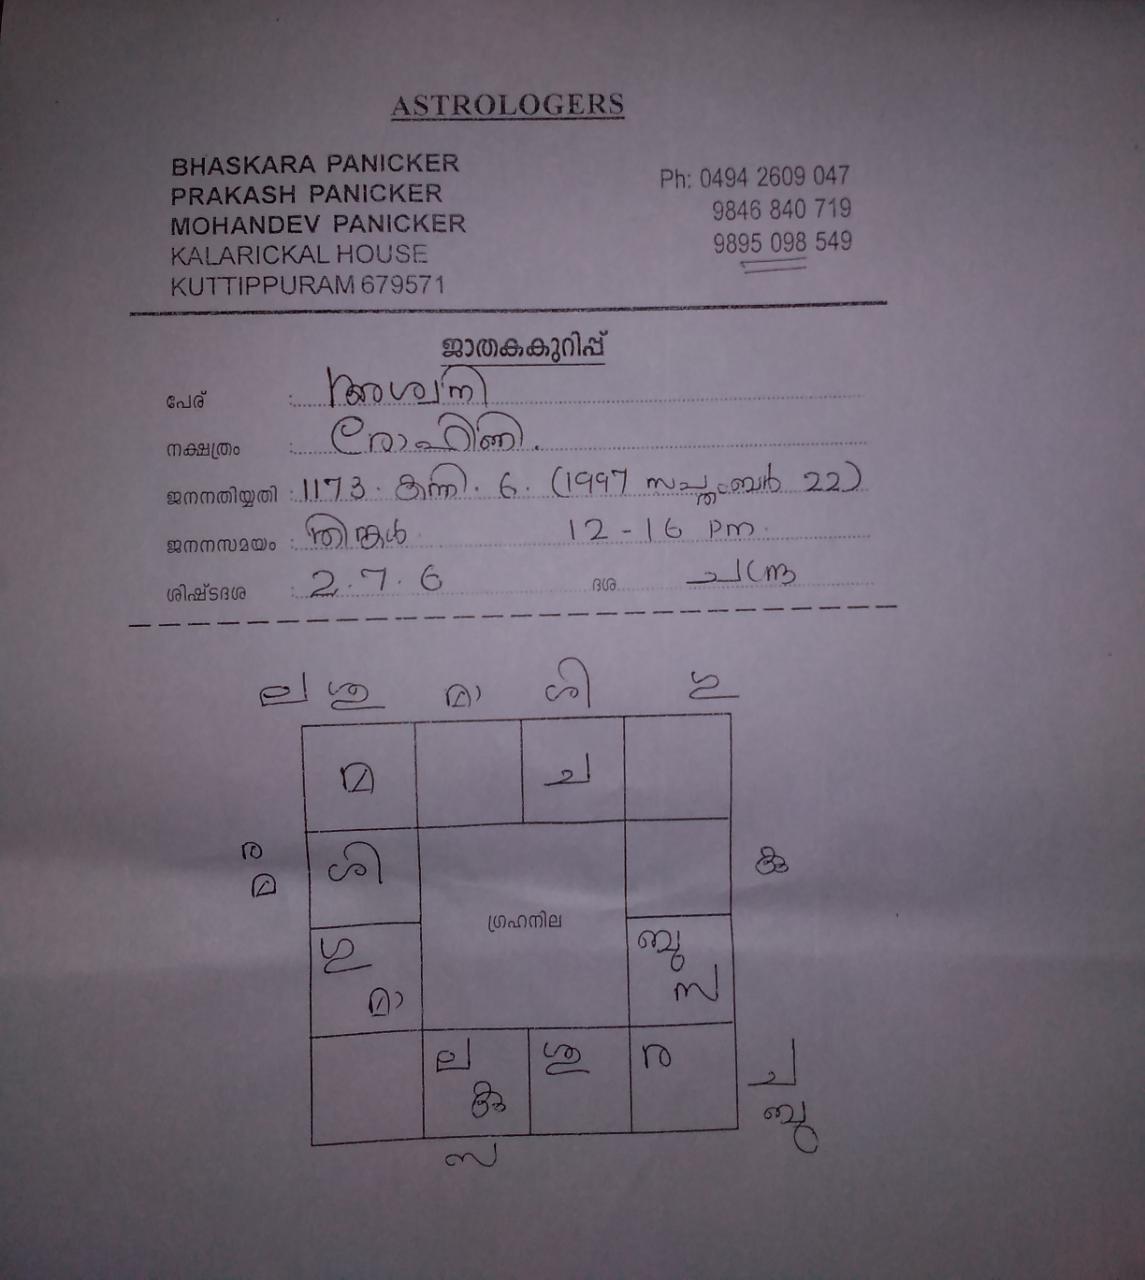 ASTROLOGERS
BHASKARA PANICKER
PRAKASH PANICKER
MOHANDEV PANICKER
KALARICKAL HOUSE
KUTTIPPURAM 679571
Ph: 0494 2609 047
9846 840 719
9895 098 549
ജാതകകുറിപ്പ്
പേര് : അശ്വനി
നക്ഷത്രം : രോഹിണി.
ജനനതിയ്യതി : 1173. കന്നി. 6. (1997 സപ്തംബർ 22)
ജനനസമയം : തിങ്കൾ 12-16 pm.
ശിഷ്ടദശ : 2.7.6 ദശ ചന്ദ്ര
ല ശു മാ ശി ഗു
മ ച
ര ശി കു
മ
ഗ്രഹനില
ഗു മാ ബു സ
ല കു ശു ര ച
ബു
സ